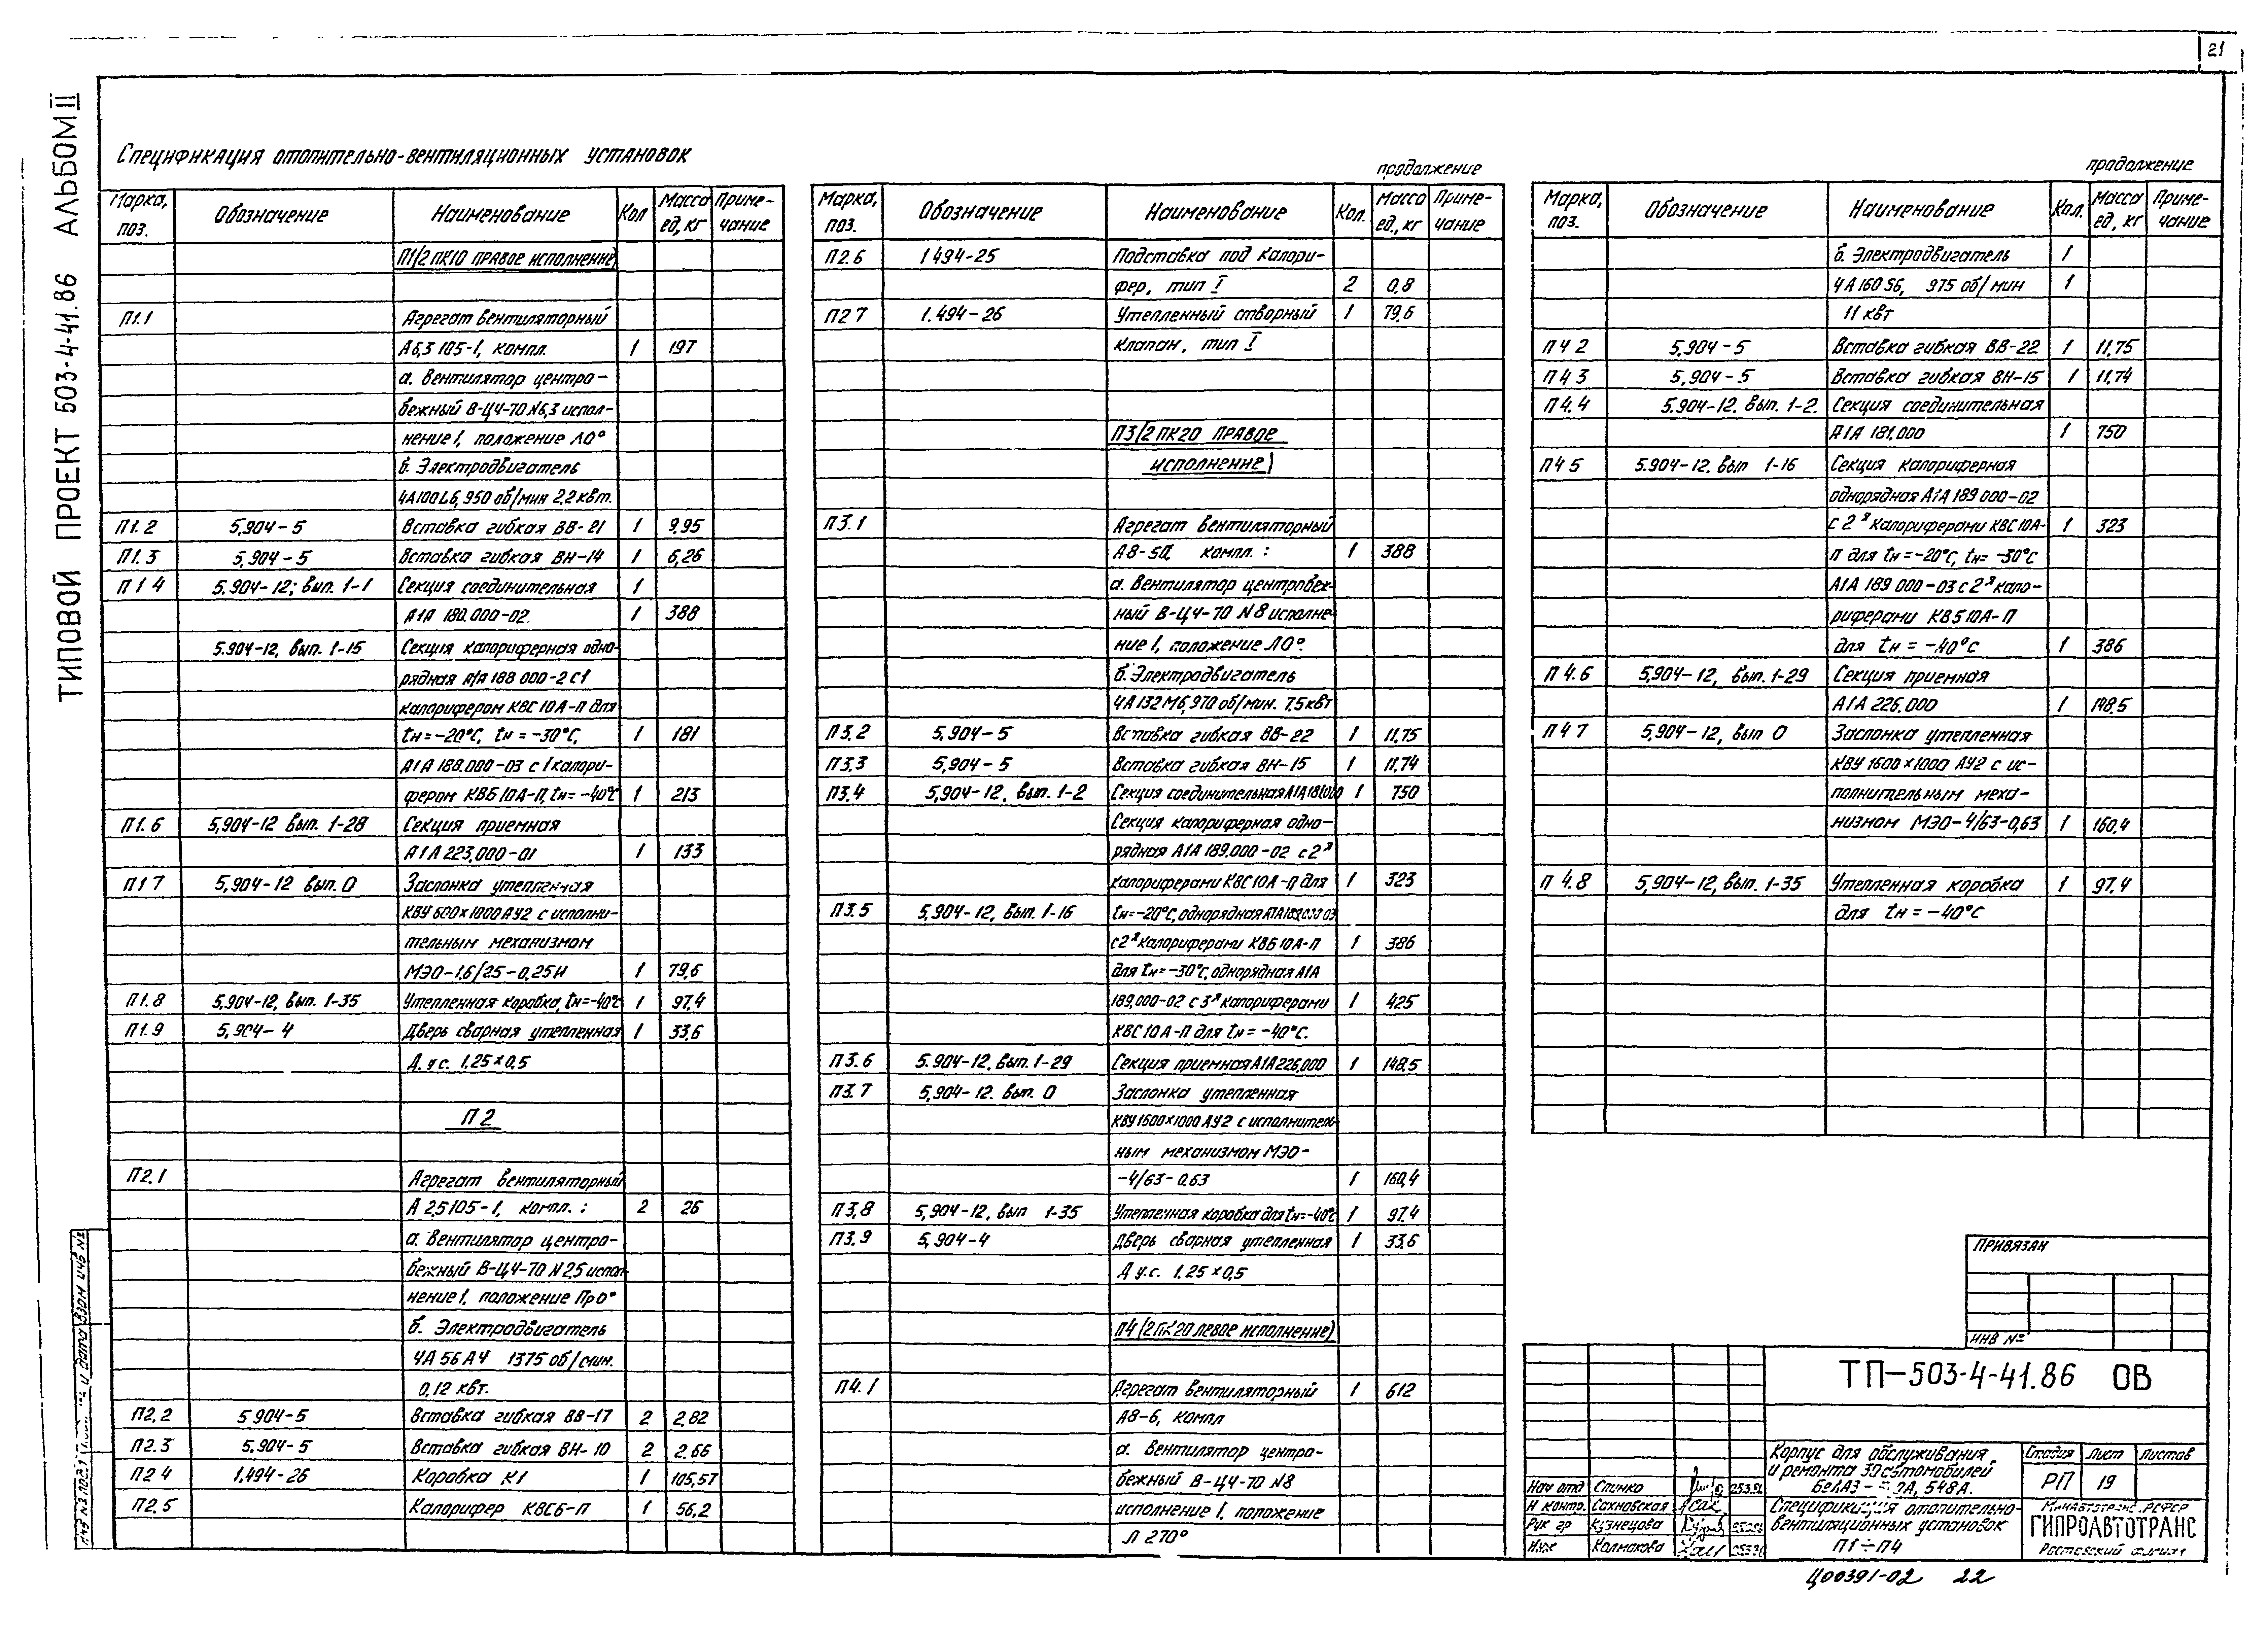 21
ТИПОВОЙ ПРОЕКТ 503-4-41.86 АЛЬБОМ II
Спецификация отопительно-вентиляционных установок
Марка, поз. Обозначение Наименование Кол Масса ед, кг Приме-чание
П1/2 ПК10 ПРАВОЕ ИСПОЛНЕНИЕ)
П1.1 Агрегат вентиляторный
А6,3 105-1, компл. 1 197
а. Вентилятор центро-
бежный В-Ц4-70 №6,3 испол-
нение 1, положение Л0°
б. Электродвигатель
4А100L6, 950 об/мин 2,2 квт.
П1.2 5,904-5 Вставка гибкая ВВ-21 1 9,95
П1.3 5,904-5 Вставка гибкая ВН-14 1 6,26
П1 4 5.904-12; вып. 1-1 Секция соединительная 1
А1А 180.000-02. 1 388
5.904-12, вып. 1-15 Секция калориферная одно-
рядная А1А 188 000-2 с 1
калорифером КВС 10А-П для
tн=-20°С, tн = -30°С, 1 181
А1А 188.000-03 с 1 калори-
фером КВБ 10А-П, tн= -40°С 1 213
П1.6 5,904-12 вып. 1-28 Секция приемная
А1А 223,000-01 1 133
П1 7 5,904-12 вып. 0 Заслонка утепленная
КВУ 600×1000 АУ2 с исполни-
тельным механизмом
МЭО-1,6/25-0,25И 1 79,6
П1.8 5,904-12, вып. 1-35 Утепленная коробка, tн=-40°С 1 97,4
П1.9 5,904-4 Дверь сварная утепленная 1 33,6
Д. у с. 1,25×0,5
П 2
П2.1 Агрегат вентиляторный
А 2,5 105-1, компл. : 2 26
а. Вентилятор центро-
бежный В-Ц4-70 N 2,5 испол-
нение 1, положение Пр 0°
б. Электродвигатель
4А 56 А4 1375 об/мин.
0,12 квт.
П2.2 5 904-5 Вставка гибкая ВВ-17 2 2,82
П2.3 5.904-5 Вставка гибкая ВН-10 2 2,66
П2 4 1,494-26 Коробка К1 1 105,57
П2.5 Калорифер КВС6-П 1 56,2
продолжение
Марка, поз. Обозначение Наименование Кол. Масса ед., кг Приме-чание
П2.6 1 494-25 Подставка под калори-
фер, тип I 2 0,8
П2 7 1.494-26 Утепленный створный 1 79,6
клапан, тип I
П3/2 ПК20 ПРАВОЕ
ИСПОЛНЕНИЕ)
П3.1 Агрегат вентиляторный
А8-5а компл. : 1 388
а. Вентилятор центробеж-
ный В-Ц4-70 N8 исполне-
ние 1, положение Л0°.
б. Электродвигатель
4А 132 М6, 970 об/мин. 7,5 квт
П3.2 5,904-5 Вставка гибкая ВВ-22 1 11,75
П3.3 5,904-5 Вставка гибкая ВН-15 1 11,74
П3.4 5,904-12, вып. 1-2 Секция соединительная А1А 181,000 1 750
Секция калориферная одно-
рядная А1А 189.000-02 с 2х
калориферами КВС 10А-П для 1 323
П3.5 5,904-12, вып. 1-16 tн=-20°С, однорядная А1А 189,000 03
с 2х калориферами КВБ 10А-П 1 386
для tн=-30°С, однорядная А1А
189,000-02 с 3х калориферами 1 425
КВС 10А-П для tн = -40°С.
П3.6 5.904-12, вып. 1-29 Секция приемная А1А 226,000 1 148,5
П3.7 5,904-12. вып. 0 Заслонка утепленная
КВУ 1600×1000 АУ2 с исполнитель-
ным механизмом МЭО-
-4/63-0,63 1 160,4
П3,8 5,904-12, вып 1-35 Утепленная коробка для tн=-40°С 1 97,4
П3.9 5,904-4 Дверь сварная утепленная 1 33,6
Д у.с. 1,25×0,5
П4 (2 ПК 20 ЛЕВОЕ ИСПОЛНЕНИЕ)
П4.1 Агрегат вентиляторный 1 612
А8-6, компл
а. Вентилятор центро-
бежный В-Ц4-70 N8
исполнение 1, положение
Л 270°
продолжение
Марка, поз. Обозначение Наименование Кол. Масса ед, кг Приме-чание
б. Электродвигатель 1
4А 160 S6, 975 об/мин 1
11 квт
П4 2 5,904-5 Вставка гибкая ВВ-22 1 11,75
П4 3 5,904-5 Вставка гибкая ВН-15 1 11,74
П4.4 5.904-12. вып. 1-2. Секция соединительная
А1А 181.000 1 750
П4 5 5.904-12. вып 1-16 Секция калориферная
однорядная А1А 189 000-02
с 2х калориферами КВС 10А- 1 323
П для tн=-20°С, tн= -30°С
А1А 189 000-03 с 2х кало-
риферами КВБ 10А-П
для tн = -40°С 1 386
П 4.6 5,904-12, вып. 1-29 Секция приемная
А1А 226.000 1 148,5
П4 7 5,904-12, вып 0 Заслонка утепленная
КВУ 1600×1000 АУ2 с ис-
полнительным меха-
низмом МЭО-4/63-0,63 1 160,4
П 4.8 5,904-12, вып. 1-35 Утепленная коробка 1 97.4
для tн = -40°С
ПРИВЯЗАН
ИНВ №
ТП-503-4-41.86 ОВ
Корпус для обслуживания
и ремонта 30 автомобилей
548А.
Стадия Лист Листов
РП 19
Нач отд Спинко
Н контр. Сахновская
Рук гр Кузнецова
Инж Колмакова
Спецификация отопительно-
вентиляционных установок
П1÷П4
МИНАВТОТРАНС РСФСР
ГИПРОАВТОТРАНС
Ростовский филиал
Взам инв №
Инв № подл
Ц00391-02 22